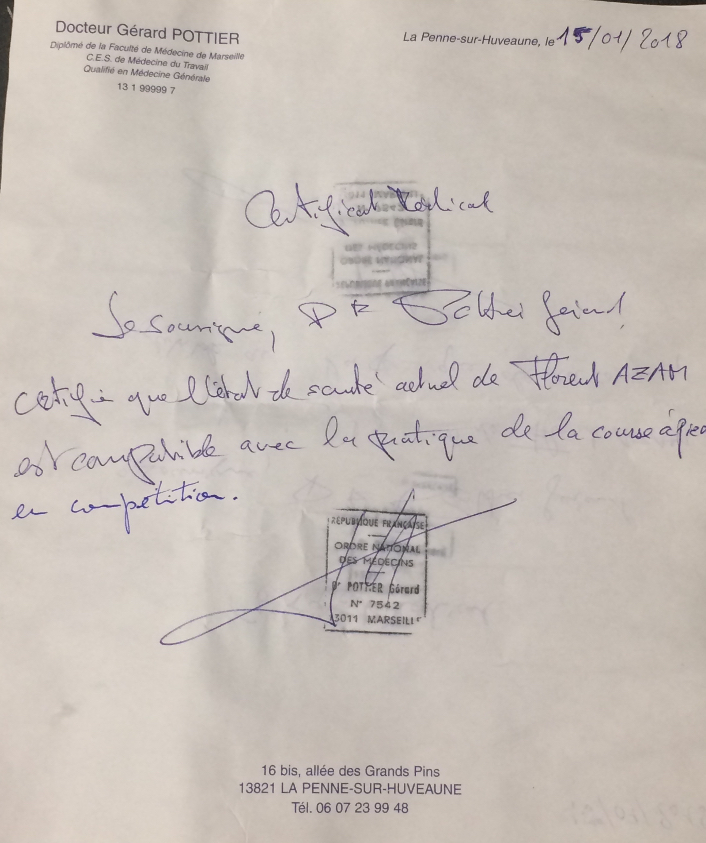 Docteur Gérard POTTIER
Diplômé de la Faculté de Médecine de Marseille
C.E.S. de Médecine du Travail
Qualifié en Médecine Générale
13 1 99999 7
La Penne-sur-Huveaune, le 15/01/2018
Certificat Médical
Je soussigné, DR Pottier Gérard,
certifie que l'état de santé actuel de Florent AZAM
est compatible avec la pratique de la course à pied
en compétition.
RÉPUBLIQUE FRANÇAISE
ORDRE NATIONAL
DES MÉDECINS
Dr POTTIER Gérard
N° 7542
13011 MARSEILLE
16 bis, allée des Grands Pins
13821 LA PENNE-SUR-HUVEAUNE
Tél. 06 07 23 99 48